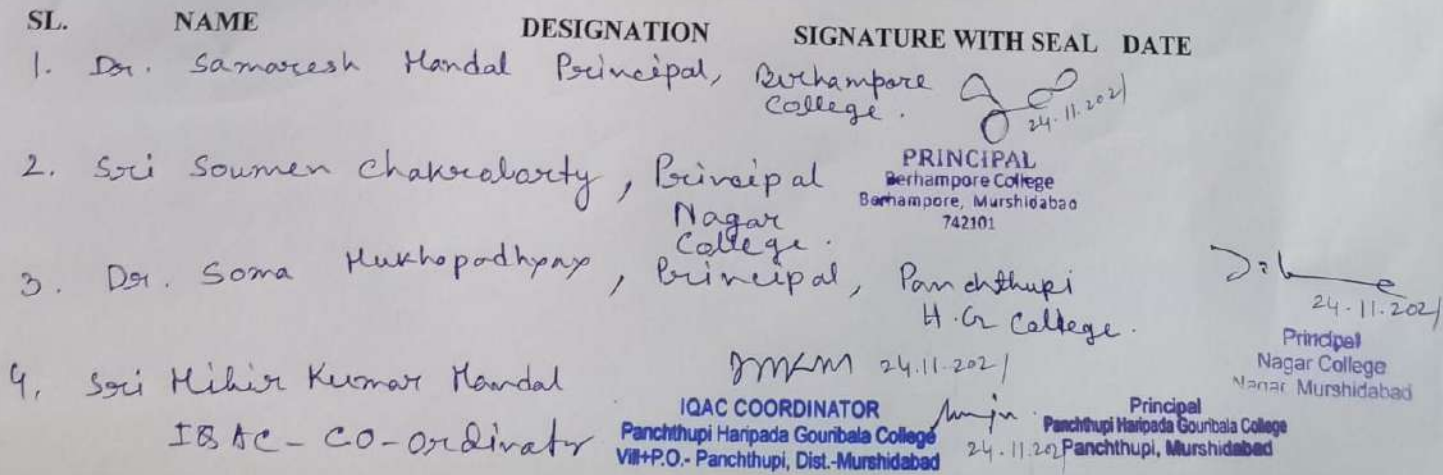 SL. NAME DESIGNATION SIGNATURE WITH SEAL DATE
1. Dr. Samaresh Mandal Principal, Berhampore
College.
24.11.2021
PRINCIPAL
Berhampore College
Berhampore, Murshidabad
742101
2. Sri Soumen Chakrabarty, Principal
Nagar
College.
24.11.2021
Principal
Nagar College
Nagar, Murshidabad
3. Dr. Soma Mukhopadhyay, Principal, Panchthupi
H.G College.
4. Sri Mihir Kumar Mandal
IQAC - CO-Ordinator
24.11.2021
IQAC COORDINATOR
Panchthupi Haripada Gouribala College
Vill+P.O.- Panchthupi, Dist.-Murshidabad
24.11.202
Principal
Panchthupi Haripada Gouribala College
Panchthupi, Murshidabad